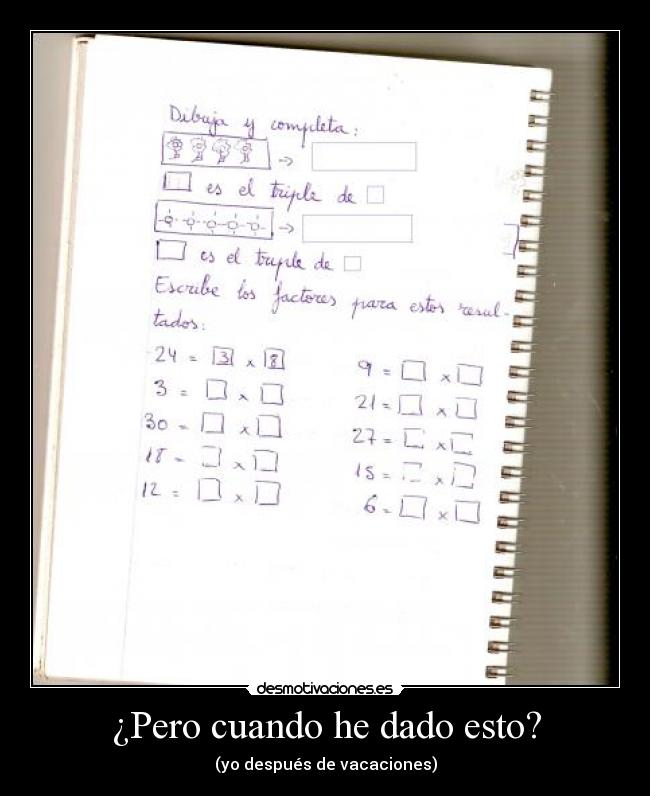 Dibuja y completa:
→
□ es el triple de □
→
□ es el triple de □
Escribe los factores para estos resul-
tados:
24 = 3 x 8
9 = □ x □
3 = □ x □
21 = □ x □
30 = □ x □
27 = □ x □
18 = □ x □
15 = □ x □
12 = □ x □
6 = □ x □
desmotivaciones.es
¿Pero cuando he dado esto?
(yo después de vacaciones)